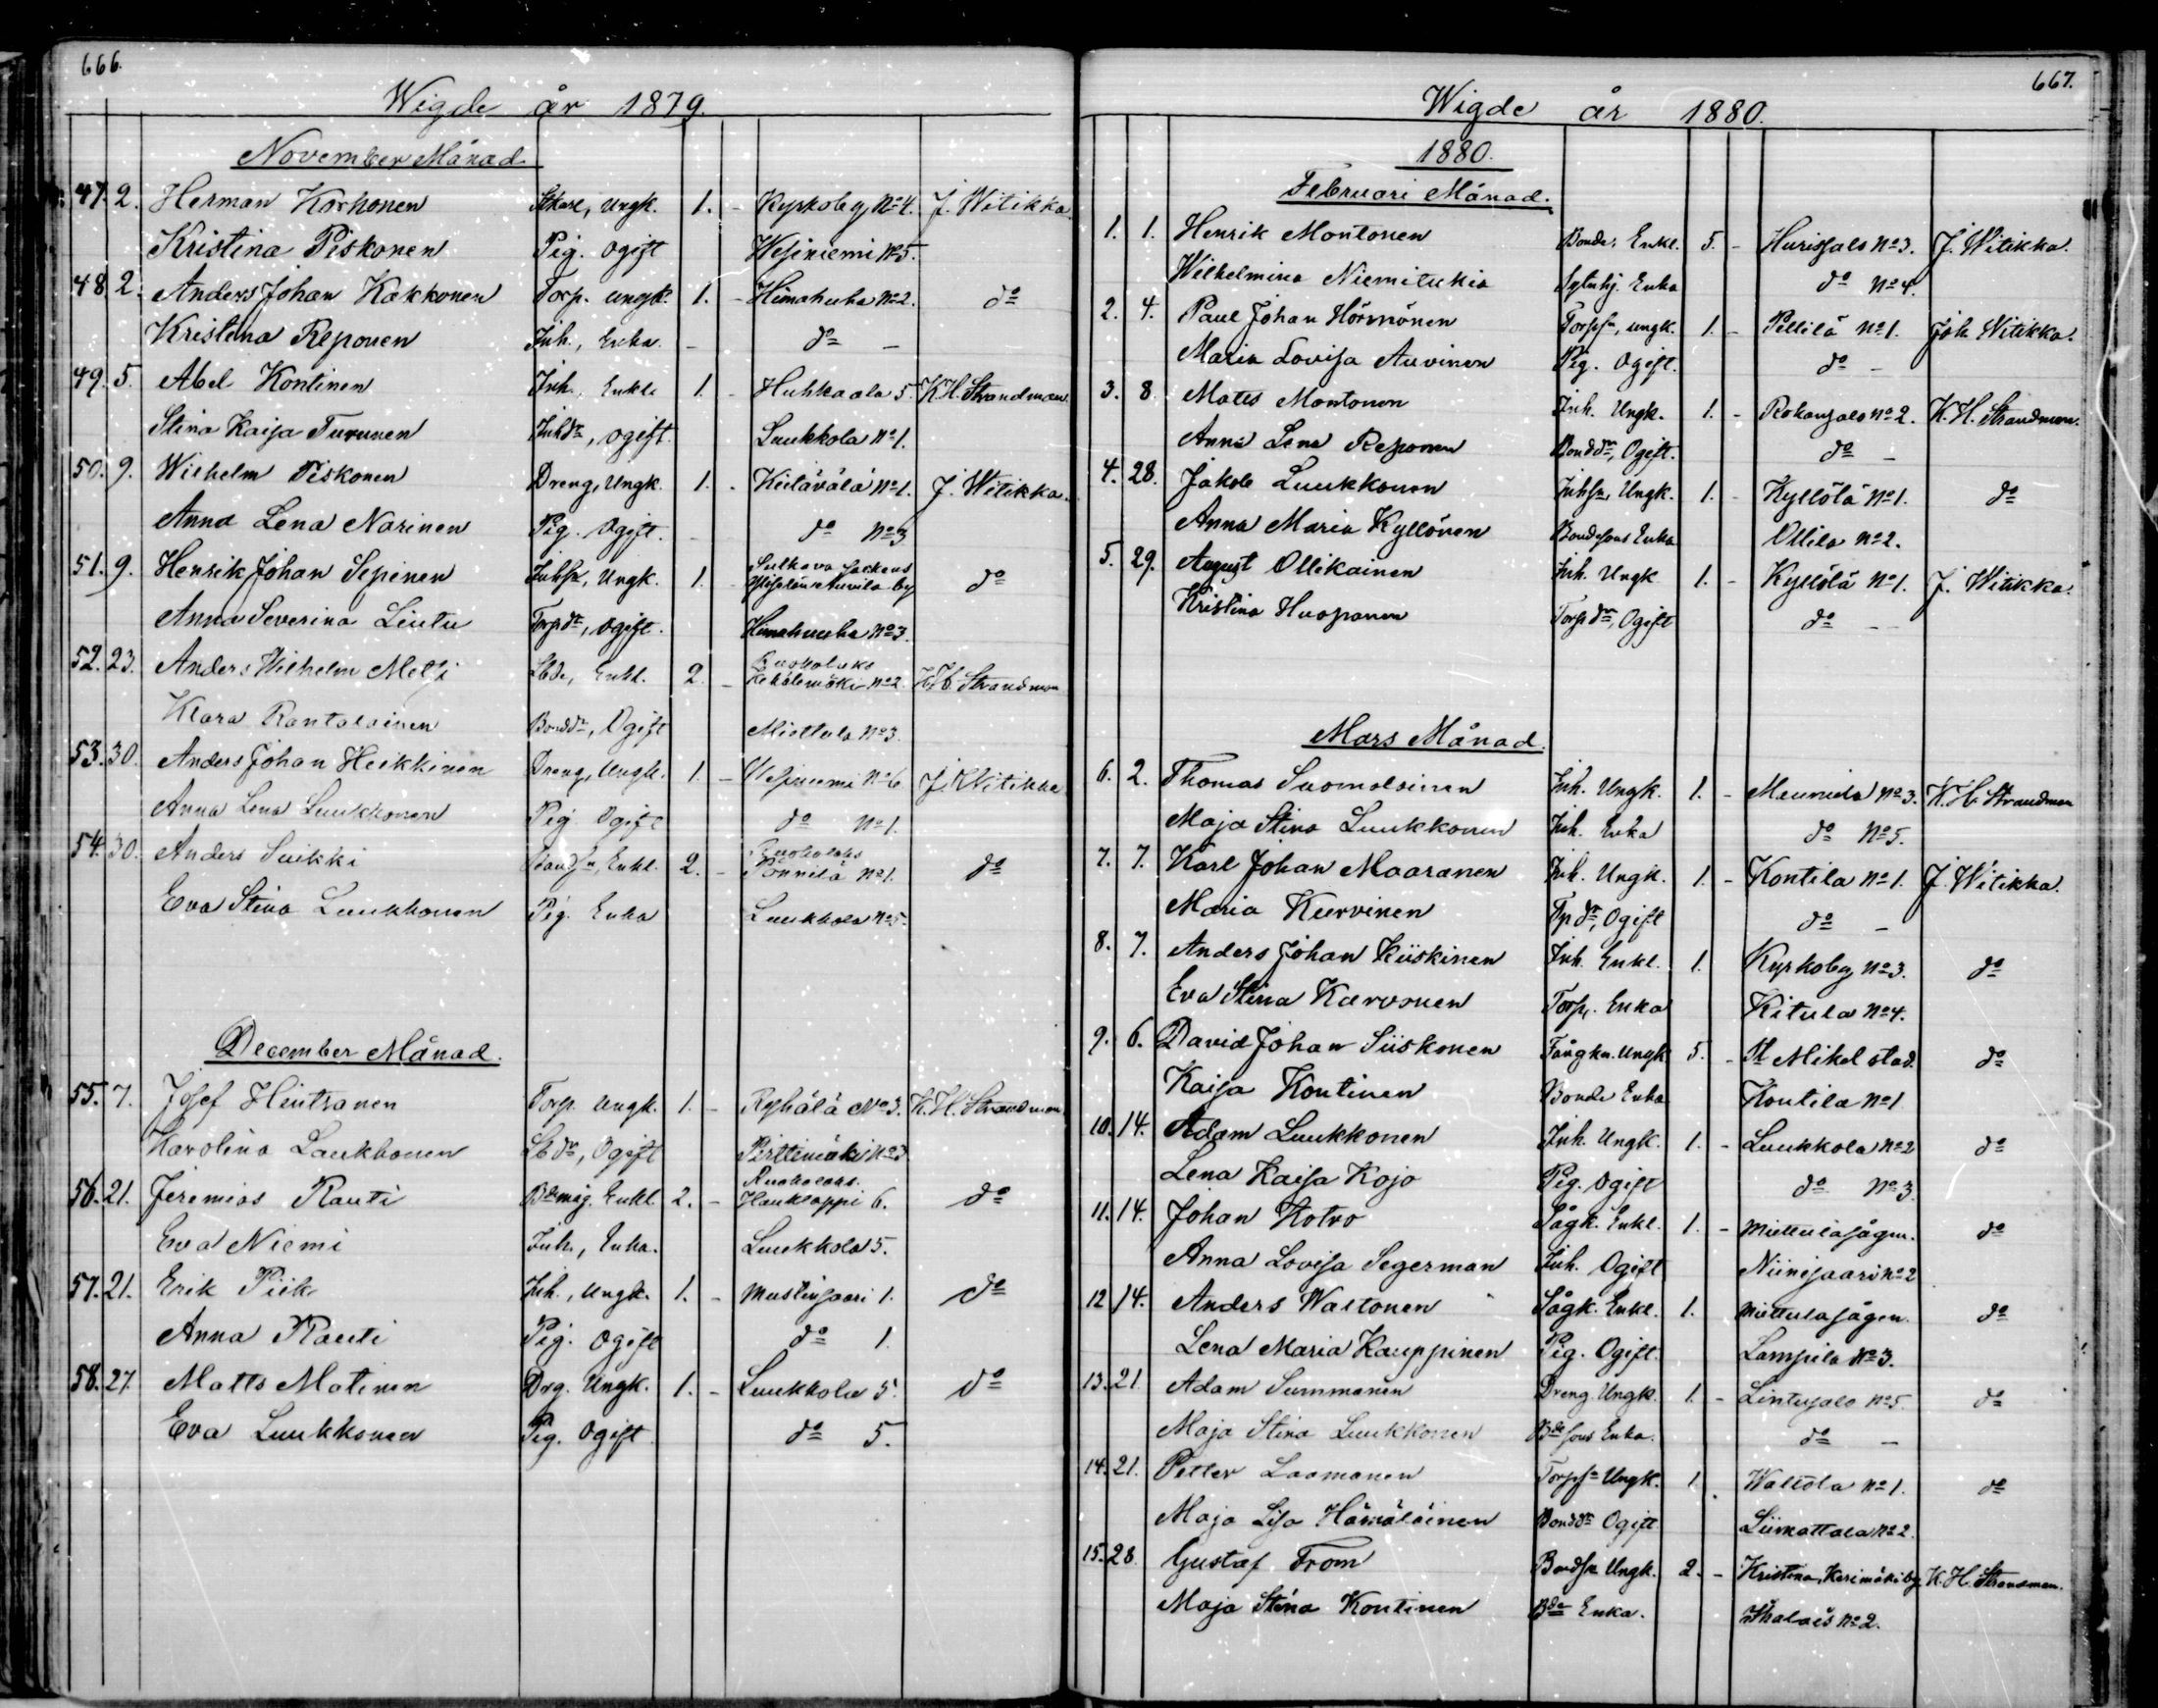 666.
Wigde år 1879.
November Månad.
47. 2. Herman Korhonen Skarl, Ungk. 1. - Kyrkoby No 4. J. Witikka.
Kristina Piskonen Pig. Ogift Wesiniemi No 5.
48 2. Anders Johan Kakkonen Torp. Ungk. 1. - Himahuha No 2. do
Kristina Reponen Inh., Enka. - do -
49. 5. Abel Kontinen Inh., Enkl. 1. - Huhkaala 5. K. H. Strandman
Stina Kaisa Turunen Inhdr, Ogift. Luukkola No 1.
50. 9. Wilhelm Piskonen Dreng, Ungk. 1. - Kietävälä No 1. J. Witikka.
Anna Lena Narinen Pig. Ogift. - do No 3
51. 9. Henrik Johan Sepinen Inhsn, Ungk. 1. - Sulkava Sockens by do
Anna Severina Lintu Torpdr, Ogift. Himahuuha No 3.
52. 23. Anders Wilhelm Meltj Lbde, Enkl. 2. - Ruokolaks Kekälemäki No 2. K. H. Strandman
Klara Rantalainen Bonddr, Ogift Miettula No 3.
53. 30. Anders Johan Heikkinen Dreng, Ungk. 1. - Wesiniemi No 6 J. Witikka
Anna Lena Luukkonen Pig. Ogift do No 1.
54. 30. Anders Suikki Bondsn, Enkl. 2. - Ruokolaks Pönnilä No 1. do
Eva Stina Luukkonen Pig. Enka Luukkola No 5.
December Månad.
55. 7. Josef Hintsanen Torp. Ungk. 1. - Ryhälä No 3. K. H. Strandman
Karolina Laukkonen Lbdr, Ogift Pirttimäki No 3
56. 21. Jeremias Rauti Bdemåg. Enkl 2. - Ruokolaks. Haukloppi 6. do
Eva Niemi Inh., Enka. Luukkola 5.
57. 21. Erik Piik Inh., Ungk. 1. - Mustinsaari 1. do
Anna Rauti Pig. Ogift do 1.
58. 27. Matts Matinen Drg. Ungk. 1. - Luukkola 5. do
Eva Luukkonen Pig. Ogift do 5.
667.
Wigde år 1880.
1880.
Februari Månad.
1. 1. Henrik Montonen Bonde, Enkl. 5 - Hurissalo No 3. J. Witikka.
Wilhelmina Niemitukia Sytnhj. Enka do No 4.
2. 4. Paul Johan Hörmönen Torpsn, Ungk. 1. - Pellilä No 1. Joh. Witikka.
Maria Lovisa Auvinen Pig. Ogift. do -
3. 8 Matts Montonen Inh. Ungk. 1. - Rokansalo No 2. K. H. Strandman.
Anna Lena Reponen Bonddr, Ogift. do -
4. 28. Jakob Luukkonen Inhsn, Ungk. 1. - Kyllölä No 1. do
Anna Maria Kyllönen Bondesons Enka Ollila No 2.
5. 29. August Ollikainen Inh. Ungk 1. - Kyllölä No 1. J. Witikka.
Kristina Huoponen Torpdr, Ogift do --
Mars Månad.
6. 2. Thomas Suomolainen Inh. Ungk. 1. - Maunula No 3. K. H. Strandman
Maja Stina Luukkonen Inh. Enka do No 5.
7. 7. Karl Johan Maaranen Inh. Ungk. 1. - Kontila No 1. J. Witikka.
Maria Kurvinen Tpdr, Ogift do -
8. 7. Anders Johan Kiiskinen Inh. Enkl. 1. Kyrkoby No 3. do
Eva Stina Karvonen Torp. Enka Kitula No 4.
9. 6. David Johan Siiskonen Fångkn. Ungk 5. - St Mikel stad. do
Kaisa Kontinen Bonde Enka Kontila No 1
10. 14. Adam Luukkonen Inh. Ungk. 1. - Luukkola No 2 do
Lena Kaisa Kojo Pig. Ogift do No 3.
11. 14. Johan Kotro Sågk. Enkl. 1. - Miettulasågen. do
Anna Lovisa Segerman Inh. Ogift Niinisaari No 2
12 14. Anders Waltonen Sågk. Enkl. 1. Miettulasågen. do
Lena Maria Kauppinen Pig. Ogift. Lampila No 3.
13. 21. Adam Summanen Dreng Ungk. 1. - Lintusalo No 5. do
Maja Stina Luukkonen Bdesons Enka. do -
14. 21. Petter Laamanen Torpsn Ungk. 1. Waltola No 1. do
Maja Lisa Hämäläinen Bonddr Ogift Liimattala No 2.
15. 28. Gustaf From Bondsn Ungk. 2. - Kristina, Karimäki by. K. H. Strandman.
Maja Stina Kontinen Bde Enka. No 2.